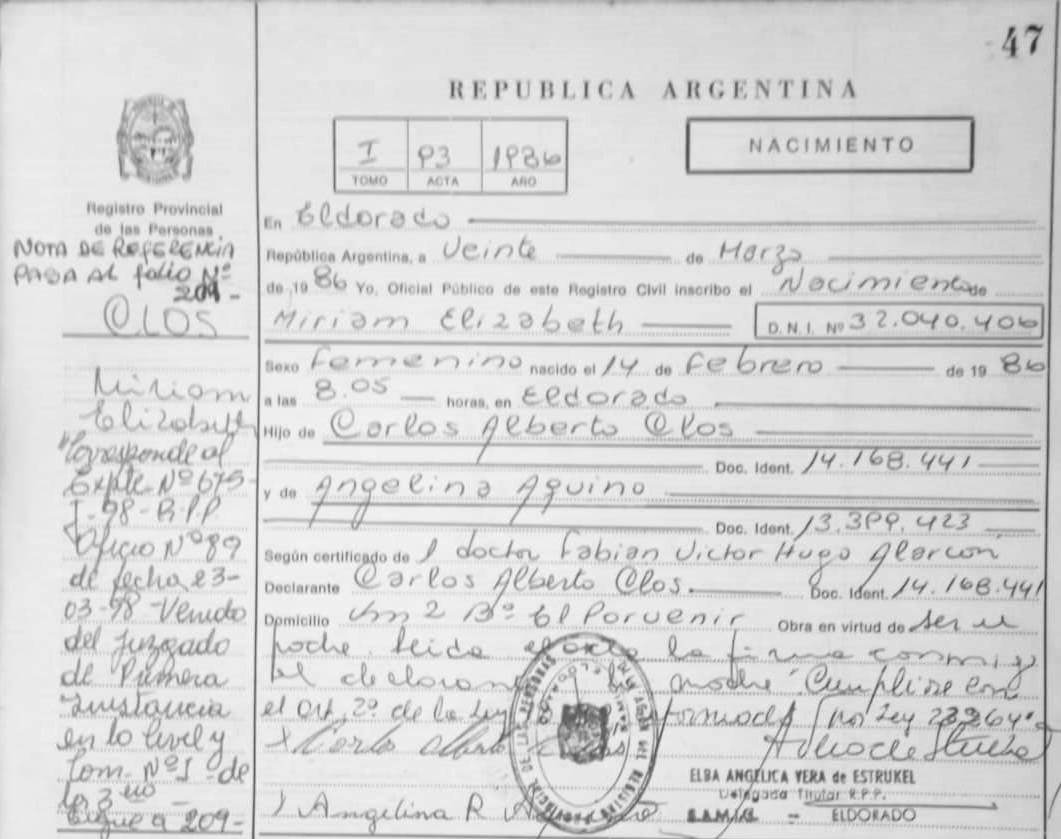 47
REPUBLICA ARGENTINA
I P3 1986
TOMO ACTA AÑO
NACIMIENTO
Registro Provincial
de las Personas
NOTA DE REFERENCIA
PASA AL folio Nº
209-
CLOS
Miriam
Elizabeth
Corresponde al
Expte Nº 675-
I-98-R.P.P.
Oficio Nº 89
de fecha 23-
03-98- Venido
del Juzgado
de Primera
Instancia
en lo Civil y
Com. Nº 1- de
la 3
Sigue a 209-
En Eldorado
República Argentina, a Veinte de Marzo
de 19 86 Yo, Oficial Público de este Registro Civil inscribo el Nacimiento de
Miriam Elizabeth D.N.I. Nº 32.040.406
Sexo Femenino nacido el 14 de Febrero de 19 86
a las 8.05 horas, en Eldorado
Hijo de Carlos Alberto Clos
Doc. Ident. 14.168.441
y de Angelina Aquino
Doc. Ident. 13.399.423
Según certificado de l doctor Fabian Victor Hugo Alarcon
Declarante Carlos Alberto Clos. Doc. Ident. 14.168.441
Domicilio Km 2 Bº El Porvenir Obra en virtud de ser el
padre. Leida el acta la firma conmigo
el declarante y la madre. Cumplise con
el art. 2º de la Ley formada por Ley 23264
Angelina R
ELBA ANGELICA VERA de ESTRUKEL
Delegada Titular R.P.P.
ELDORADO